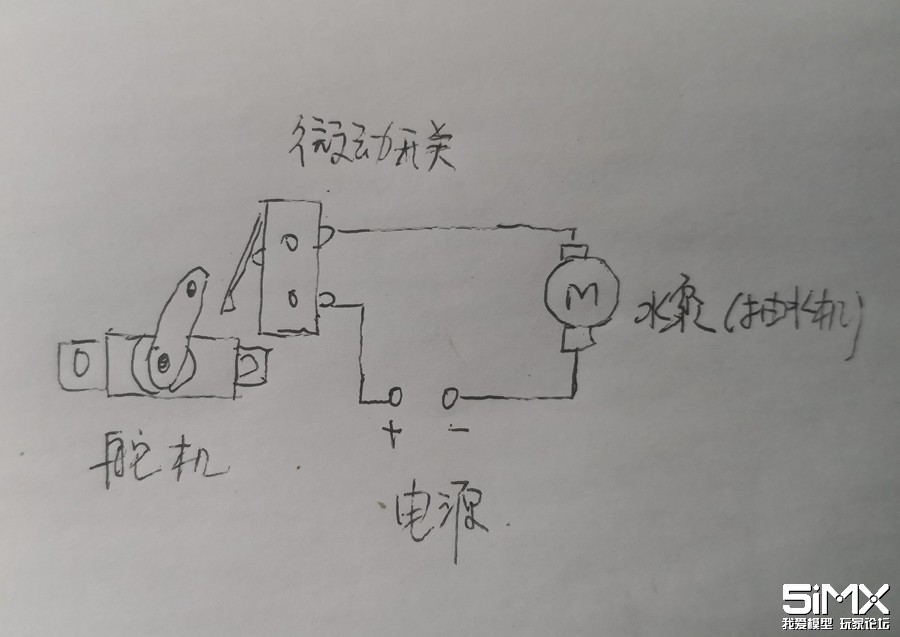 微动开关
M
水泵(抽水机)
+ -
舵机
电源
5iMX
我爱模型 玩家论坛